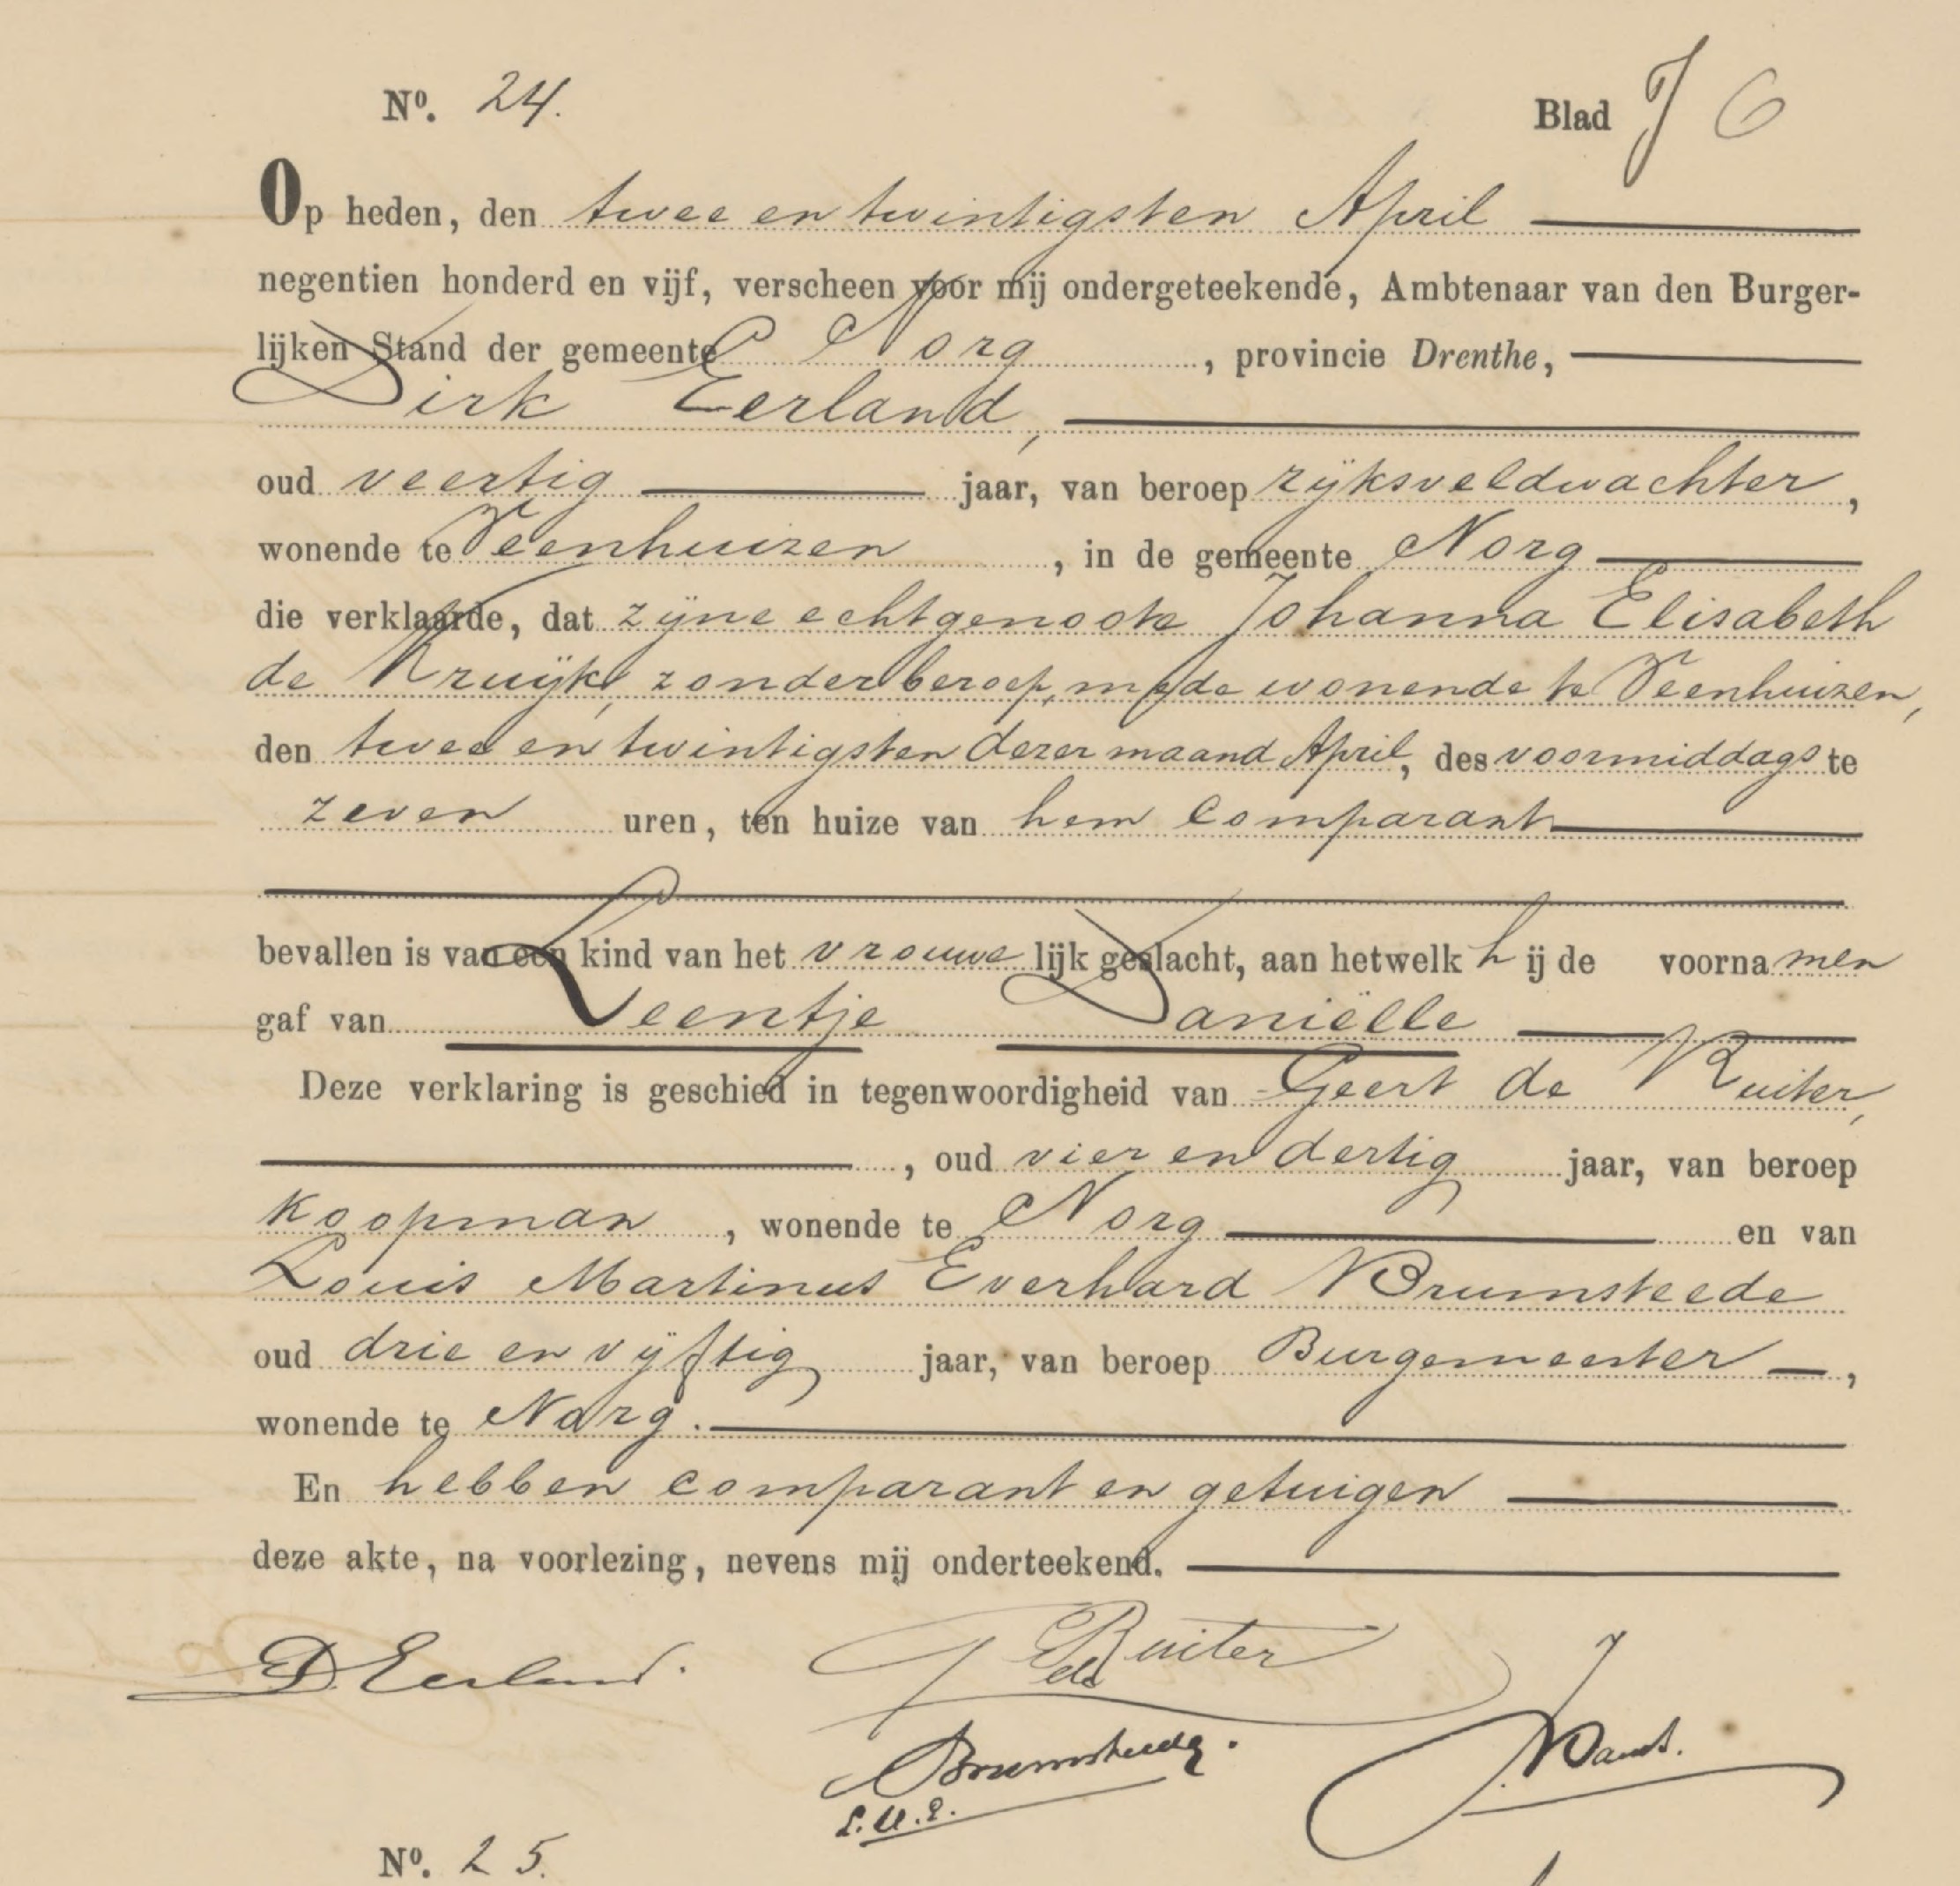 Nº. 24. Blad 6
Op heden, den twee en twintigsten April
negentien honderd en vijf, verscheen voor mij ondergeteekende, Ambtenaar van den Burger-
lijken Stand der gemeente Norg, provincie Drenthe,
Dirk Eerland,
oud veertig jaar, van beroep rijksveldwachter,
wonende te Veenhuizen, in de gemeente Norg
die verklaarde, dat zijne echtgenoote Johanna Elisabeth
de Kruijk, zonder beroep, mede wonende te Veenhuizen,
den twee en twintigsten dezer maand April, des voormiddags te
zeven uren, ten huize van hem comparant
bevallen is van een kind van het vrouwelijk geslacht, aan hetwelk hij de voornamen
gaf van Leentje Daniëlle
Deze verklaring is geschied in tegenwoordigheid van Geert de Ruiter,
, oud vier en dertig jaar, van beroep
koopman, wonende te Norg en van
Louis Martinus Everhard Brumsteede
oud drie en vijftig jaar, van beroep Burgemeester,
wonende te Norg.
En hebben comparant en getuigen
deze akte, na voorlezing, nevens mij onderteekend.
D. Eerland. G de Ruiter
Brumsteede.
L.M.E.
Nº. 25.